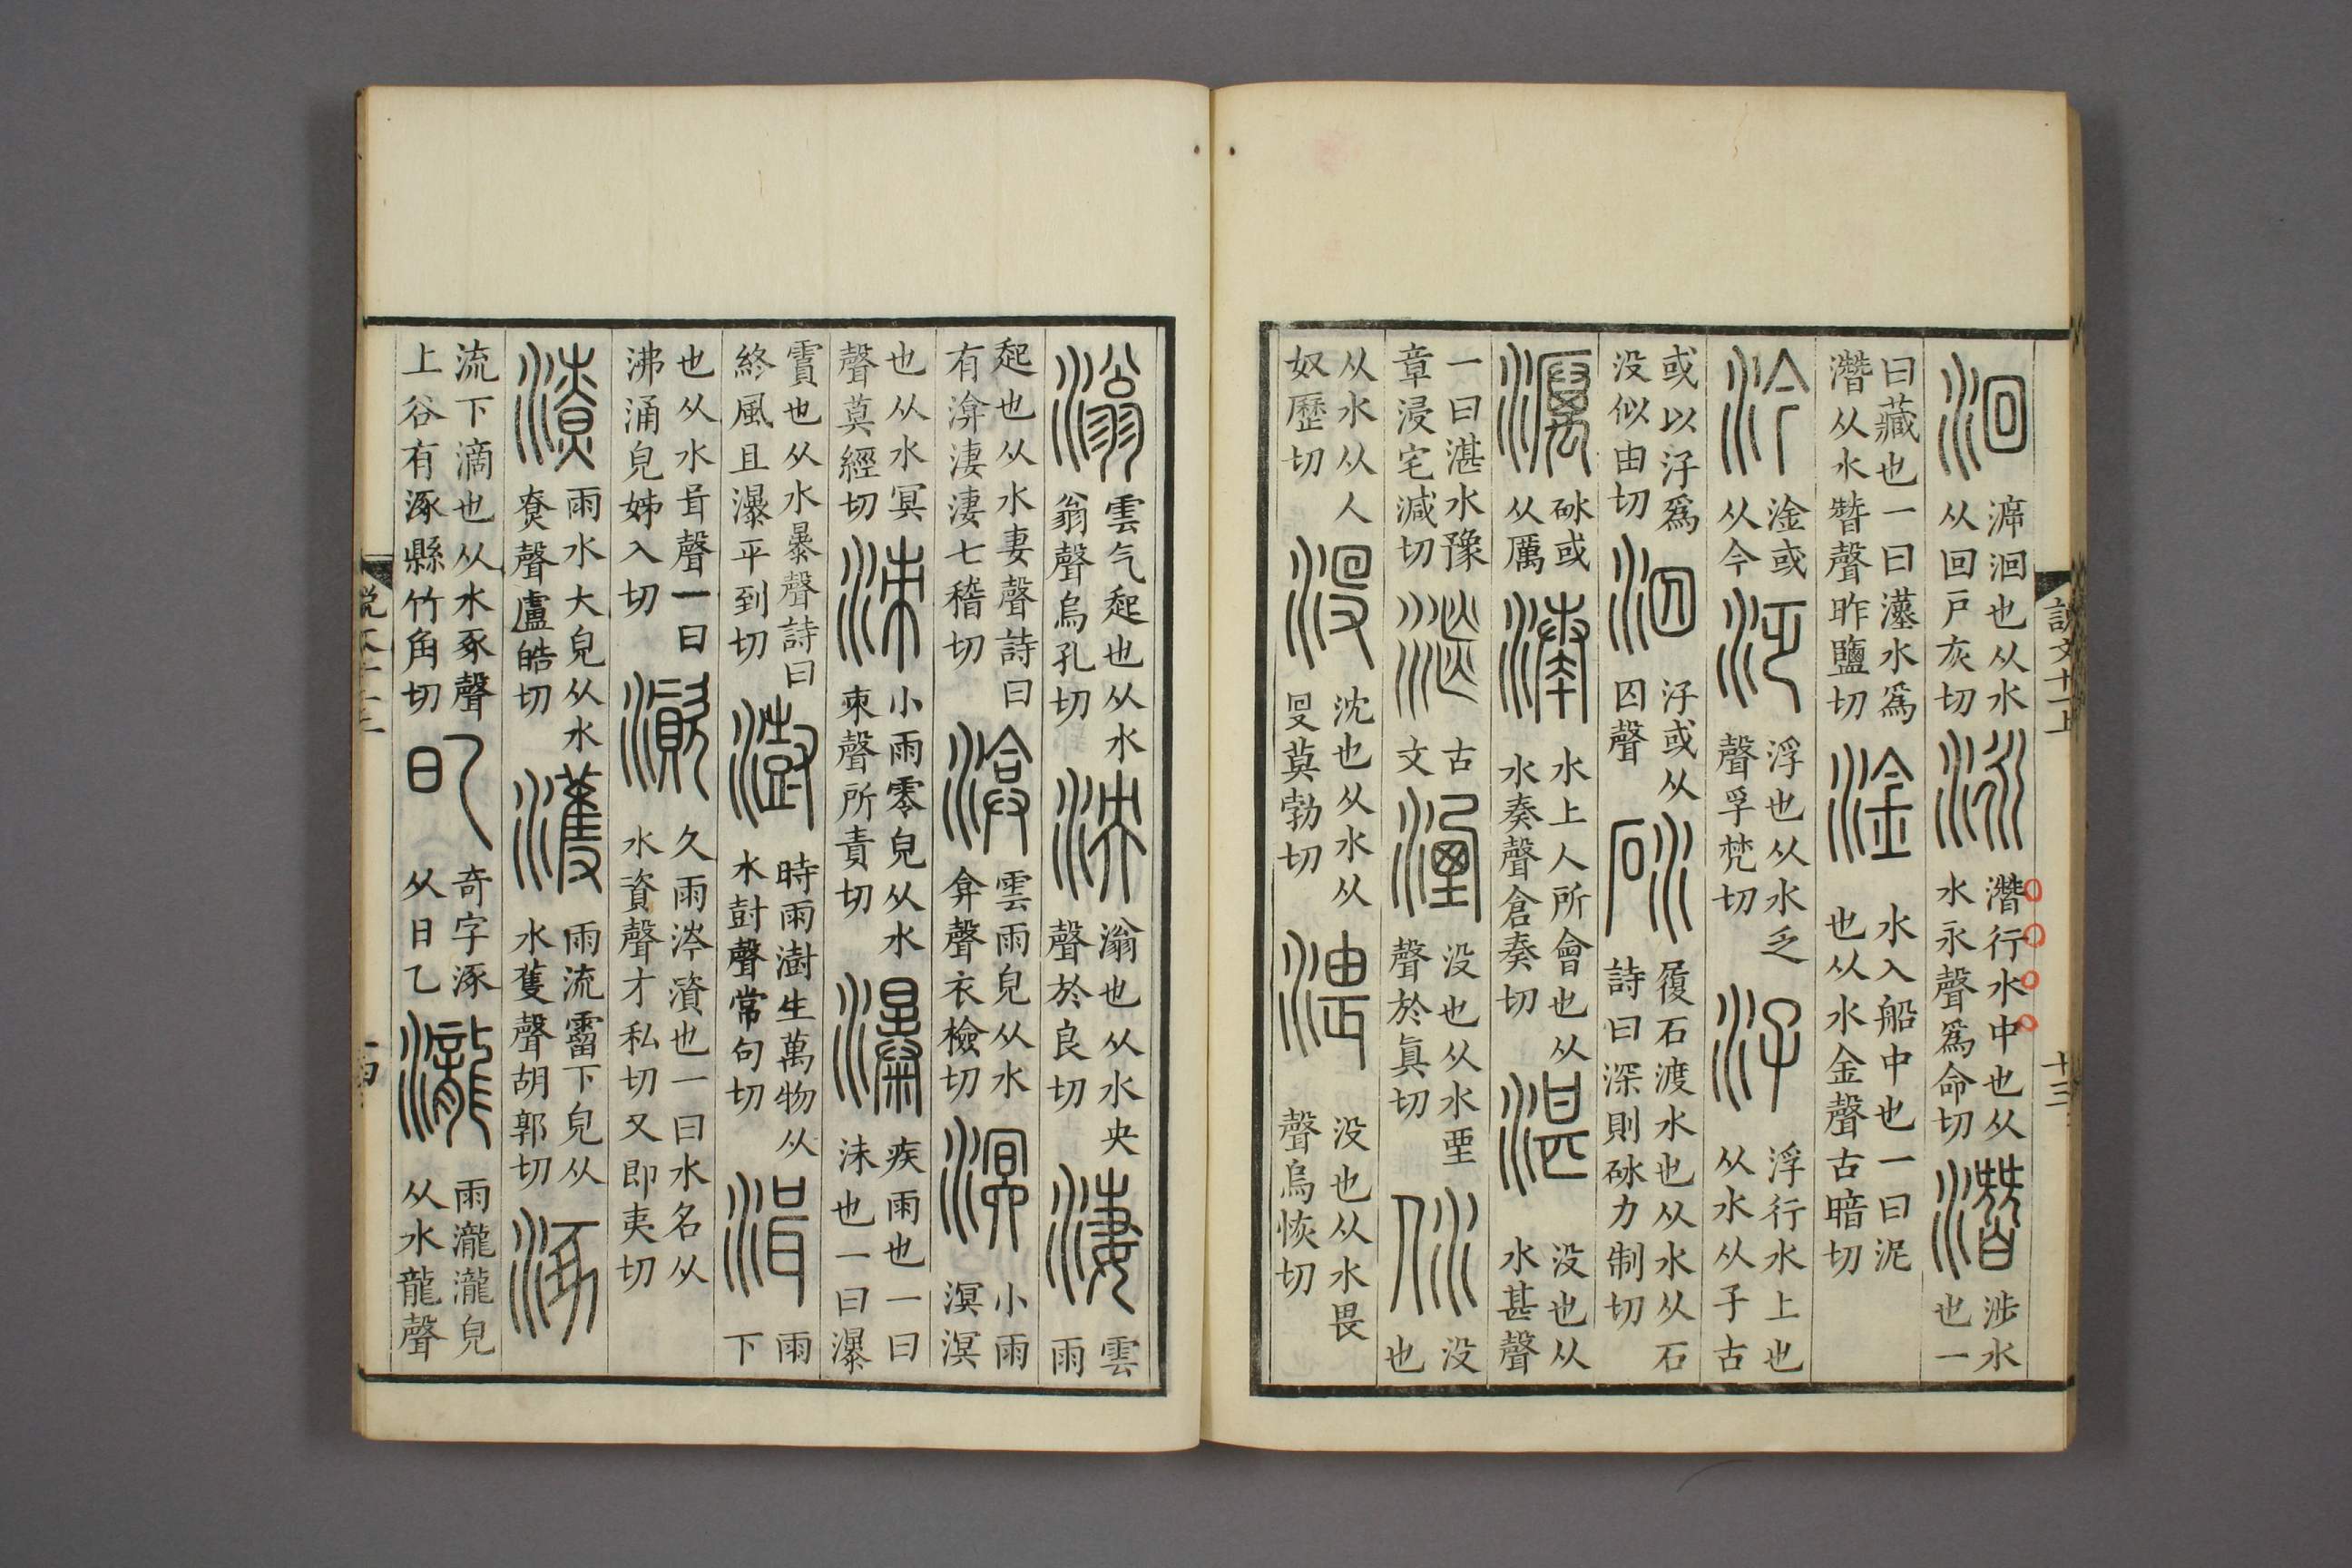 說文十一上
十三
洄㴑洄也从水从回戶灰切泳潛行水中也从水永聲爲命切潛涉水也一
曰藏也一曰漢水爲潛从水朁聲昨鹽切淦水入船中也一曰泥也从水金聲古暗切
汵淦或从今泛浮也从水乏聲孚梵切汓浮行水上也从水从子古
或以汓爲没似由切泅汓或从囚聲砅履石渡水也从水从石詩曰深則砅力制切
濿砅或从厲湊水上人所會也从水奏聲倉奏切湛没也从水甚聲
一曰湛水豫章浸宅減切㴴古文湮没也从水垔聲於眞切㲻没也
从水从人奴歷切没沈也从水从𠬛莫勃切渨没也从水畏聲烏恢切
滃雲气起也从水翁聲烏孔切泱滃也从水央聲於良切淒雲雨
起也从水妻聲詩曰有渰淒淒七稽切渰雲雨皃从水弇聲衣檢切溟小雨溟溟
也从水冥聲莫經切涑小雨零皃从水朿聲所責切瀑疾雨也一曰沬也一曰瀑
霣也从水暴聲詩曰終風且瀑平到切澍時雨澍生萬物从水尌聲常句切湒雨下
也从水咠聲一曰沸涌皃姊入切澬久雨涔澬也一曰水名从水資聲才私切又即夷切
潦雨水大皃从水尞聲盧皓切濩雨流霤下皃从水蒦聲胡郭切涿
流下滴也从水豖聲上谷有涿縣竹角切𠰳奇字涿从日乙瀧雨瀧瀧皃从水龍聲